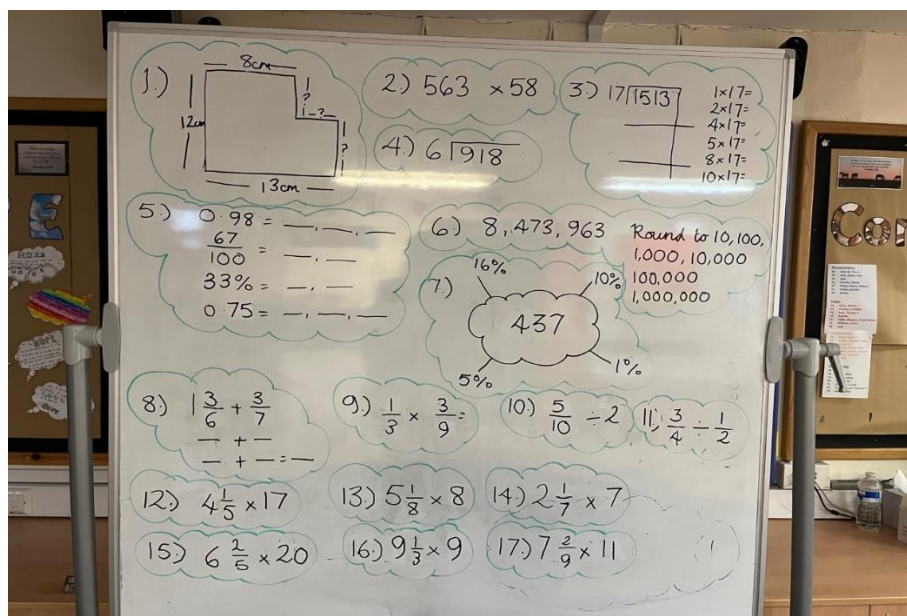 1.)
8cm
12cm
?
?
?
13cm
2.) 563 × 58
3.) 17 1513
1×17=
2×17=
4×17=
5×17=
8×17=
10×17=
4.) 6 918
5.) 0.98 = _, _, _
67/100 = _, _
33% = _, _
0.75 = _, _, _
6.) 8,473,963 Round to 10, 100,
1,000, 10,000
100,000
1,000,000
7.)
16%
10%
437
5%
1%
8.) 1 3/6 + 3/7
_ + _
_ + _ = _
9.) 1/3 × 3/9 =
10.) 5/10 ÷ 2
11.) 3/4 ÷ 1/2
12.) 4 1/5 × 17
13.) 5 1/8 × 8
14.) 2 1/7 × 7
15.) 6 2/5 × 20
16.) 9 1/3 × 9
17.) 7 2/9 × 11
E
HOPE
Cor